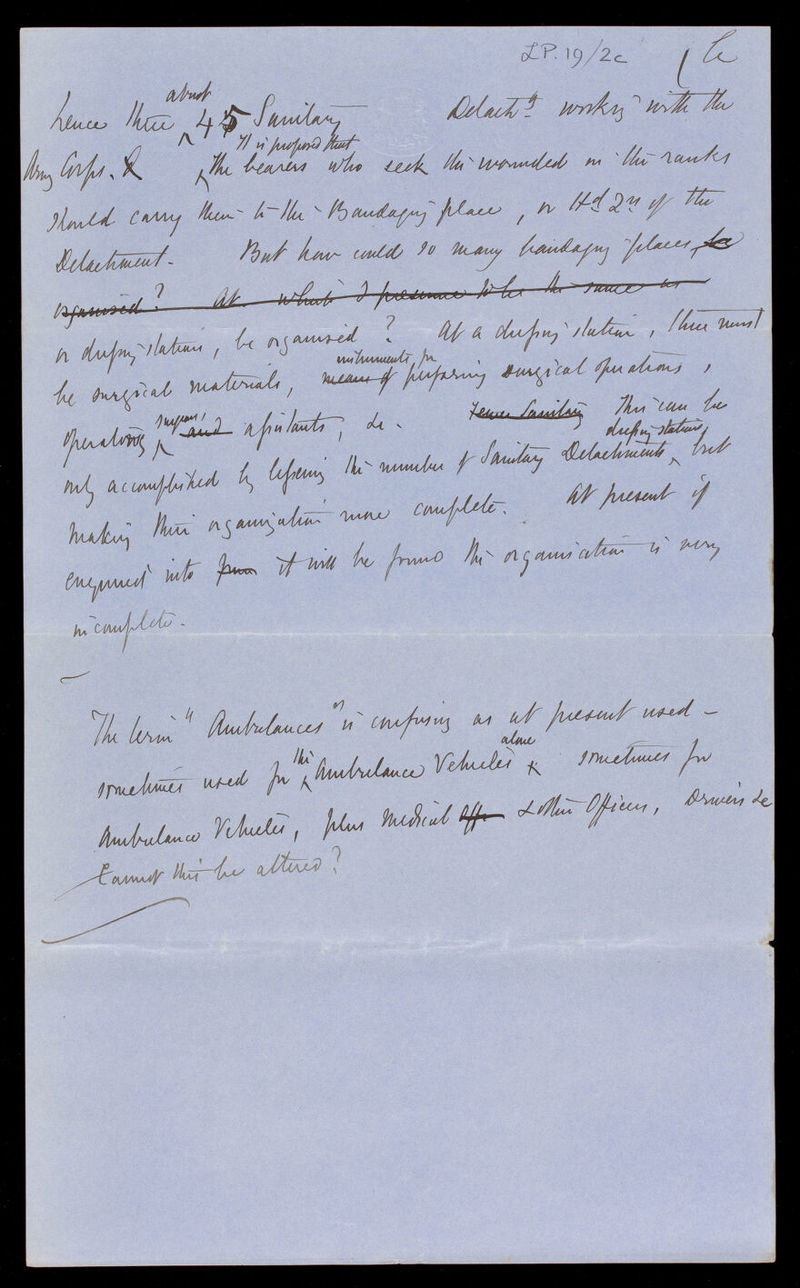 LP. 19/2c
hence three ^about 45 Sanitary Detachts working with the
Army Corps. ^It is proposed that the bearers who seek the wounded in the ranks
should carry them to the Bandaging place, or Hd Qrs of the
Detachment. But how could so many bandaging places, be
organised? At what I presume to be the same as
or dressing stations, be organised? At a dressing station, there must
be surgical materials, means of instruments for performing surgical operations,
operating surgeons, and assistants, &c. Fewer Sanitary This can be
only accomplished by lessening the number of Sanitary Detachments ^dressing stations, but
making their organization more complete. At present if
enquired into from it will be found the organisation is very
incomplete.
The term "Ambulances" is confusing as at present used –
sometimes used for ^the Ambulance Vehicles ^alone sometimes for
Ambulance Vehicles, plus Medical Offr & other Officers, Drivers &c
Cannot this be altered?